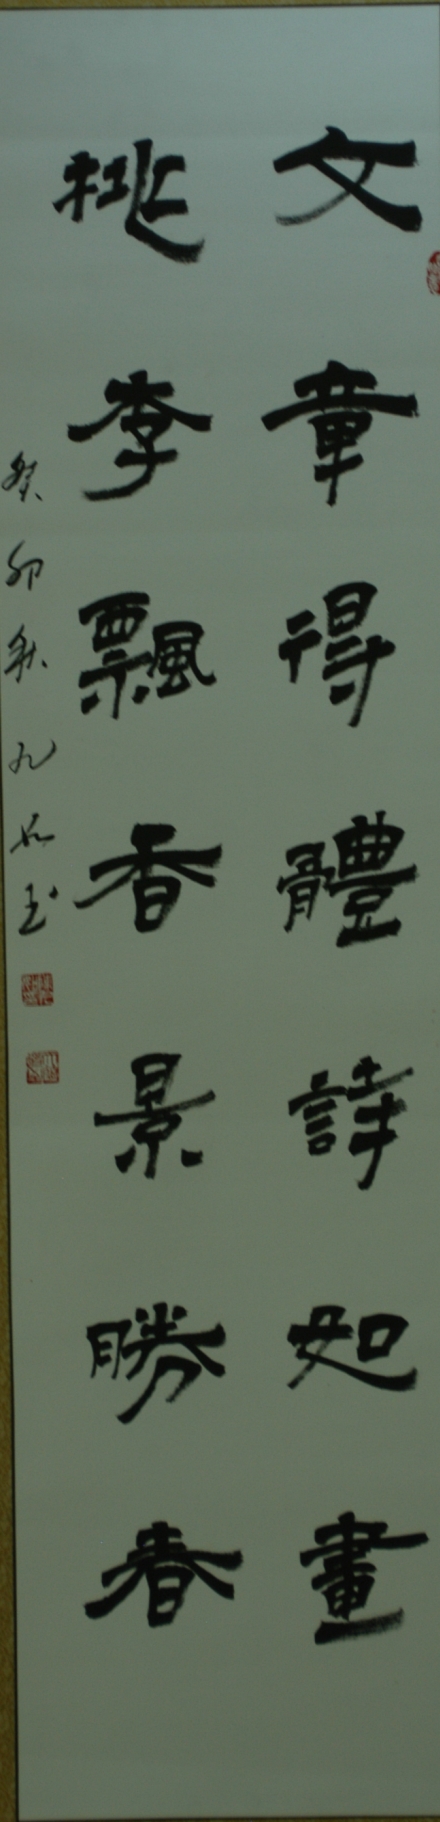 文章得體詩如畫
桃李飄香景勝春
癸卯秋